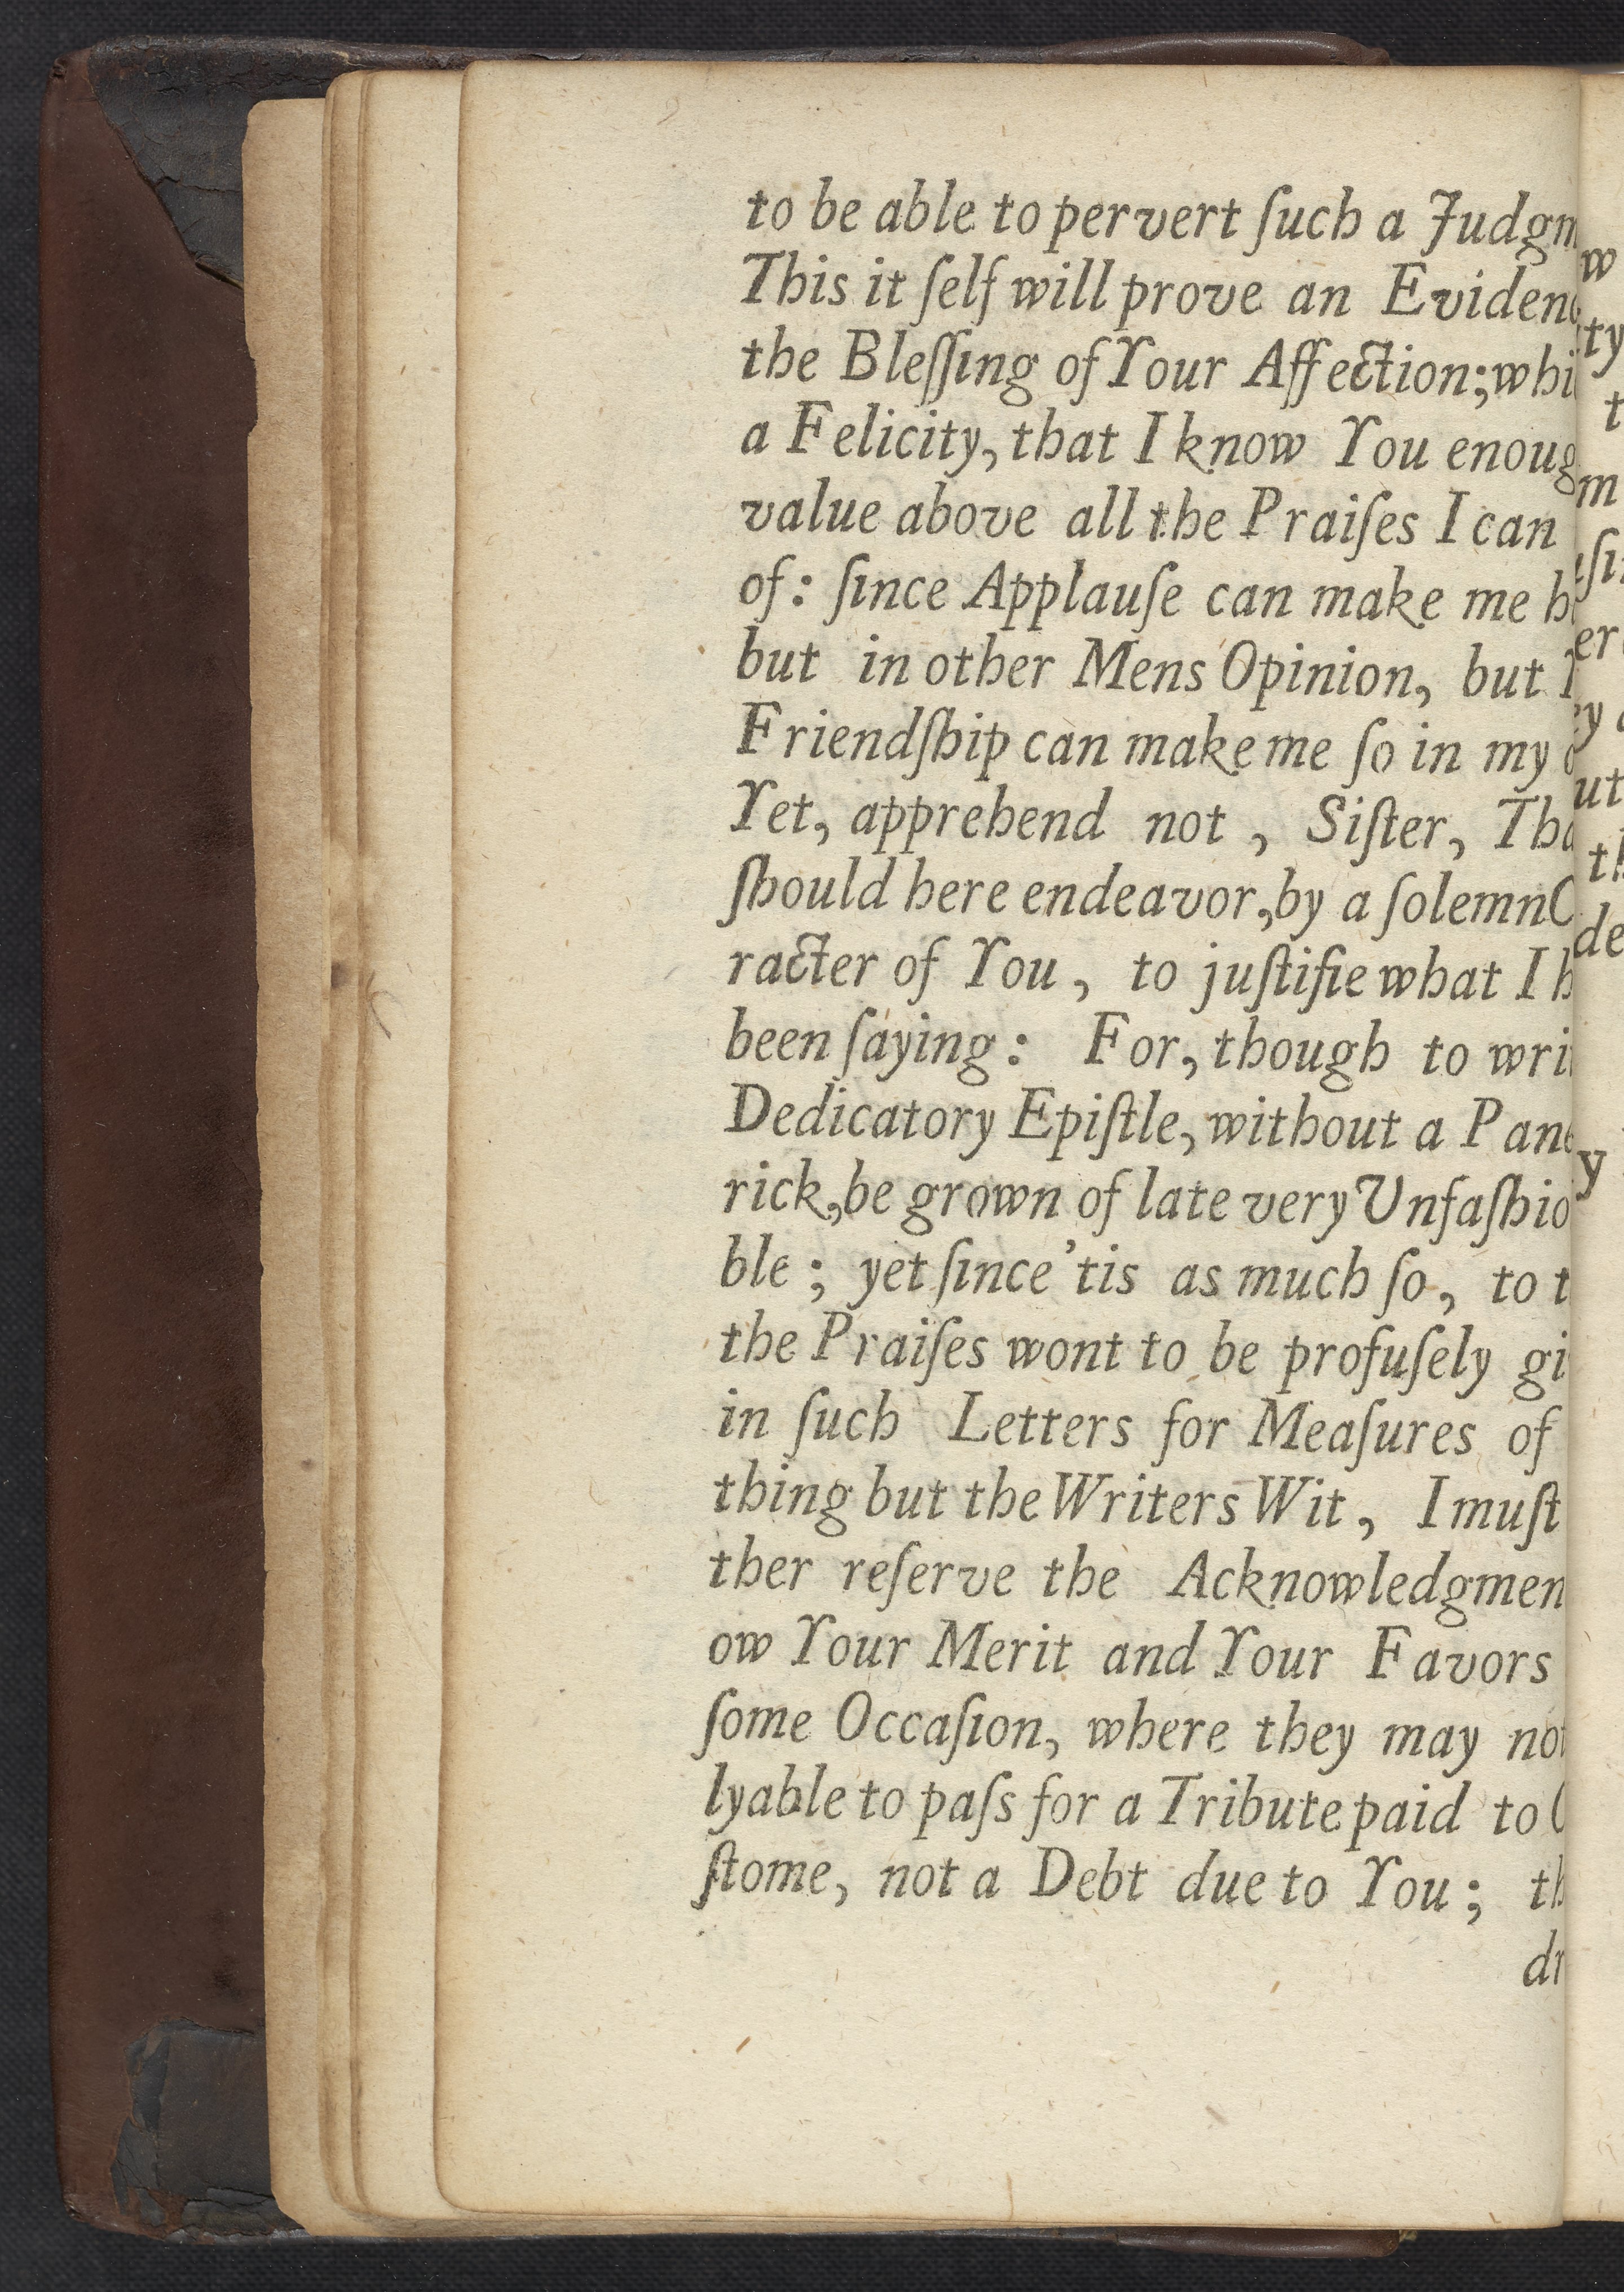 to be able to pervert ſuch a Judgm
This it ſelf will prove an Evidenc
the Bleſſing of Your Affection; whi
a Felicity, that I know You enoug
value above all the Praiſes I can
of: ſince Applauſe can make me h
but in other Mens Opinion, but
Friendſhip can make me ſo in my
Yet, apprehend not, Siſter, Tha
ſhould here endeavor, by a ſolemn C
racter of You, to juſtifie what I h
been ſaying: For, though to wri
Dedicatory Epiſtle, without a Pane
rick, be grown of late very Unfaſhio
ble; yet ſince 'tis as much ſo, to t
the Praiſes wont to be profuſely gi
in ſuch Letters for Meaſures of
thing but the Writers Wit, I muſt
ther reſerve the Acknowledgmen
ow Your Merit and Your Favors
ſome Occaſion, where they may not
lyable to paſs for a Tribute paid to C
ſtome, not a Debt due to You; th
dr
w
ty
t
m
ſi
er
y
ut
th
de
y